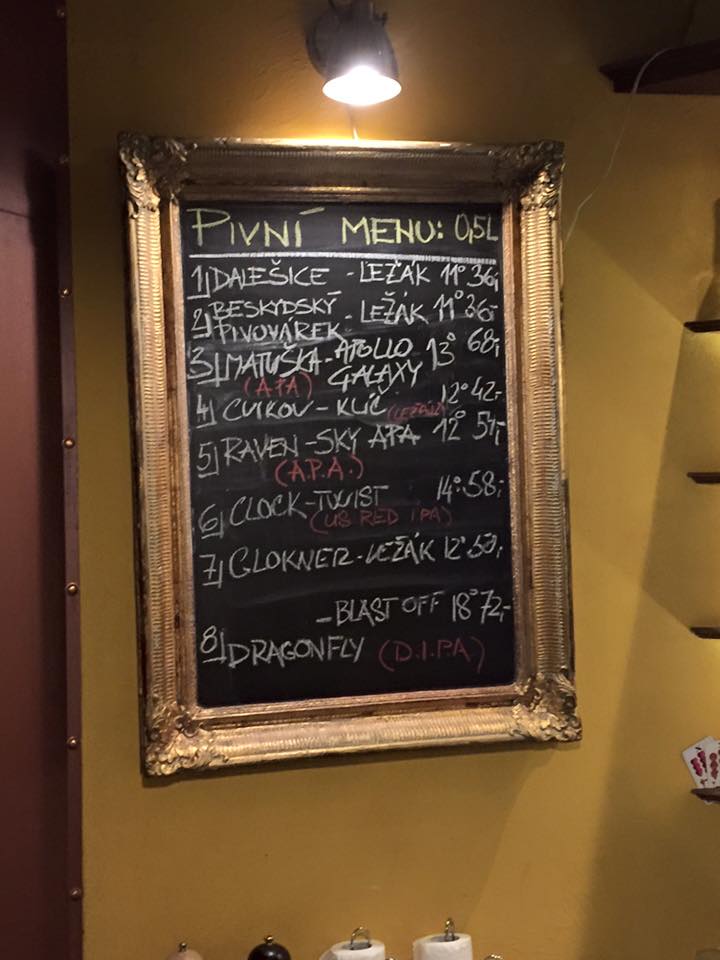 PIVNÍ MENU: 0,5L
1) DALEŠICE - LEŽÁK 11° 36,-
2) BESKYDSKÝ PIVOVÁREK - LEŽÁK 11° 36,-
3) MATUŠKA - APOLLO GALAXY 13° 68,-
(APA)
4) CVIKOV - KLÍČ (LEŽÁK) 12° 42,-
5) RAVEN - SKY APA 12° 54,-
(A.P.A.)
6) CLOCK - TWIST 14° 58,-
(US RED IPA)
7) GLOKNER - LEŽÁK 12° 50,-
- BLAST OFF 18° 72,-
8) DRAGONFLY (D.I.PA)